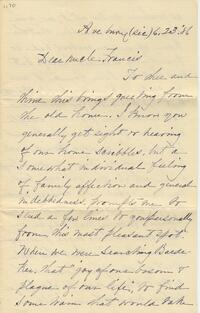 Ave mny (sic) 6.23.86
Dear uncle Francis
To thee and
thine this brings greeting from
the old home. I know you
generally get sight or hearing
of our home scribbles, but a
somewhat individual feeling
of family affection and general
indebtedness, prompts me to
send a few lines to you personally
from this most pleasant spot
When we were searching Baede
ker, that "joy of our bosom &
plague of our life", to find
some town that would take